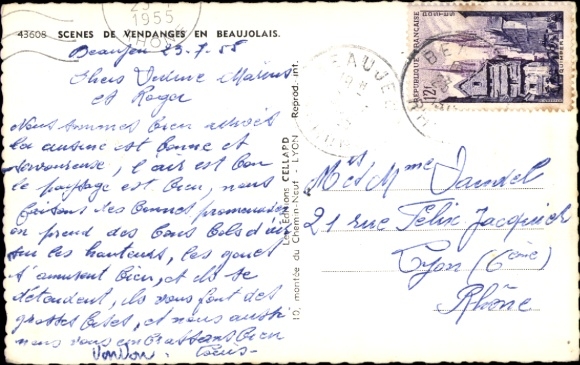 43608 SCENES DE VENDANGES EN BEAUJOLAIS.
Beaujeu 23-7-55
Chers Marius
et Roger
Nous sommes bien
la cuisine est bonne et
savoureuse, l'air est bon
le paysage est bien, nous
faisons des bonnes promenades
on prend des bons bols d'air
sur les hauteurs, les gones
s'amusent bien, et ils se
détendent, ils vous font des
grosses bises, et nous aussi
nous vous embrassons bien
tous-
Les Editions CELLARD
10, montée du Chemin-Neuf - LYON - Reprod. int.
1955
RHONE
BEAUJEU
REPUBLIQUE FRANÇAISE
POSTES
12F
QUIMPER
M et Mme
21 rue Félix Jacquier
Lyon (6ème)
Rhône